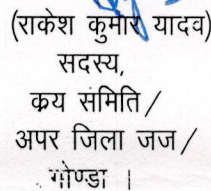 (राकेश कुमार यादव)
सदस्य,
क्रय समिति /
अपर जिला जज /
गोण्डा ।